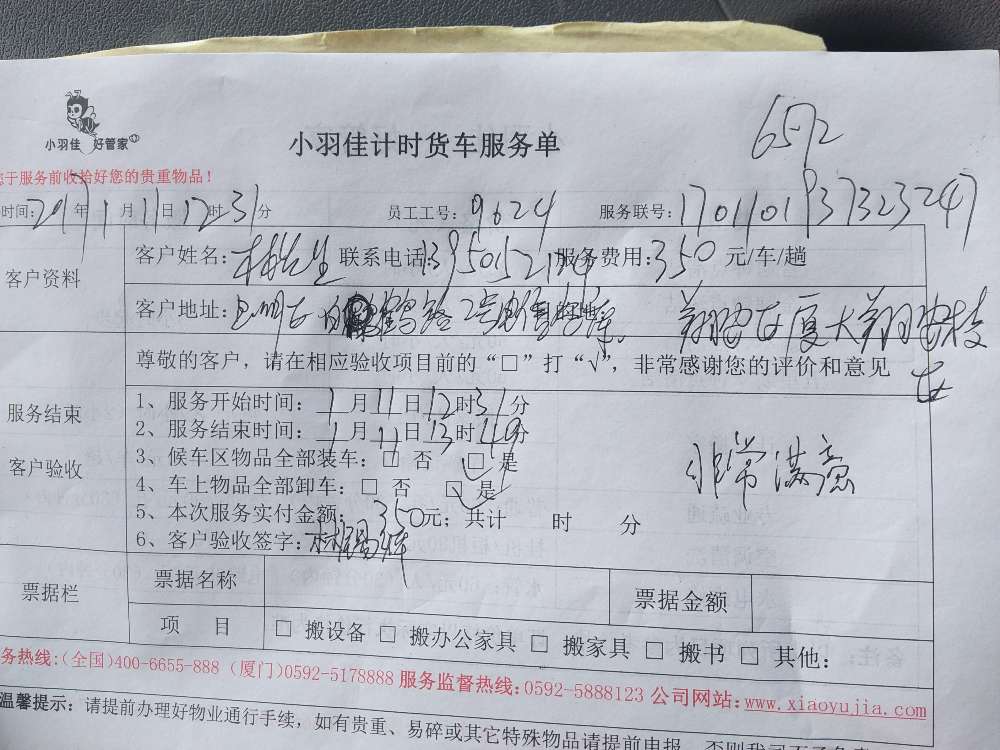 小羽佳 好管家
小羽佳计时货车服务单
6592
您于服务前收拾好您的贵重物品！
时间：2017年1月11日12时31分 员工工号：9624 服务联号：170110193733247
客户资料
客户姓名：林先生 联系电话： 服务费用：350元/车/趟
客户地址： 2号 翔安区厦大翔安校区
尊敬的客户，请在相应验收项目前的“□”打“√”，非常感谢您的评价和意见
服务结束
客户验收
1、服务开始时间：1月11日12时31分
2、服务结束时间：1月11日13时49分
3、候车区物品全部装车：□ 否 □ 是
4、车上物品全部卸车：□ 否 □ 是
非常满意
5、本次服务实付金额：350元；共计 时 分
6、客户验收签字：林锡辉
票据栏
票据名称 票据金额
项 目 □ 搬设备 □ 搬办公家具 □ 搬家具 □ 搬书 □ 其他：
务热线:(全国)400-6655-888 (厦门)0592-5178888 服务监督热线：0592-5888123 公司网站：www.xiaoyujia.com
温馨提示：请提前办理好物业通行手续，如有贵重、易碎或其它特殊物品请提前申报，否则我司不